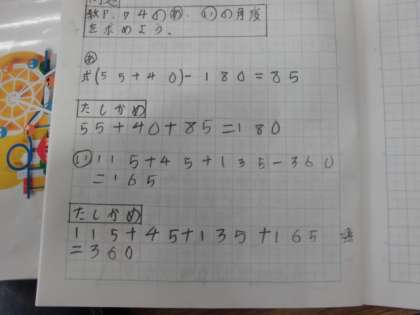 教P.74のあ、いの角度
を求めよう。
あ
式(55+40)-180=85
たしかめ
55+40+85=180
い115+45+135-360
=165
たしかめ
115+45+135+165
=360